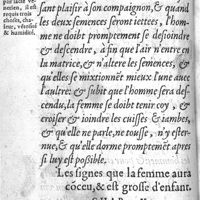 par lacte ve-
nerien, il est
requis trois
choses, cha-
leur, ventosité
& humidité.
sant plaisir à son compaignon, & quand
les deux semences seront iettees, l'hom-
me ne doibt promptement se desioindre
& descendre, à fin que l'air n'entre en
la matrice, & n'altere les semences, &
qu'elles se mixtionnêt mieux l'une auec
l'aultre: & subit que l'homme sera des-
cendu, la femme se doibt tenir coy, &
croiser & ioindre les cuisses & iambes,
et qu'elle ne parle, ne tousse, n'y ester-
nue, & qu'elle dorme promptemêt apres
si luy est possible.
Les signes que la femme aura
côceu, & est grosse d'enfant.